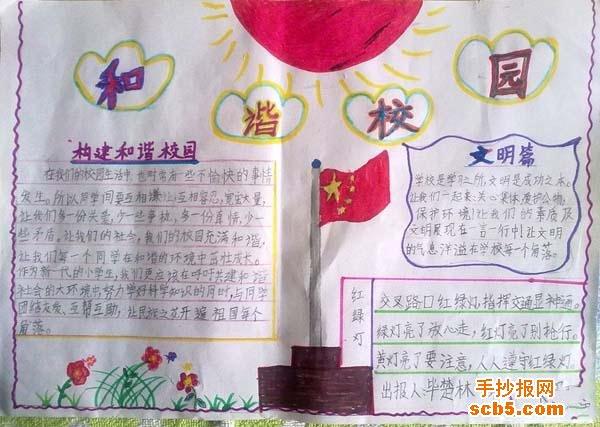 和谐校园
构建和谐校园
在我们的校园生活中,也时常有一些不愉快的事情
发生。所以同学间要互相谦让互相容忍,宽宏大量,
让我们多一份关爱,少一些争执,多一份真情,少一
些矛盾。让我们的社会,我们的校园充满和谐,
让我们每一个同学在和谐的环境中茁壮成长。
作为新一代的小学生,我们更应该在呼吁共建和谐
社会的大环境下,努力学好科学知识的同时,与同学
团结友爱、互帮互助,让民族之花开遍祖国每个
角落。
文明篇
学校是学习之所,文明是成功之本。
让我们一起来:关心集体爱护公物,
保护环境!让我们的素质及
文明展现在一言一行中!让文明
的气息洋溢在学校每一个角落。
红绿灯
交叉路口红绿灯,指挥交通显神通。
绿灯亮了放心走,红灯亮了别抢行。
黄灯亮了要注意,人人遵守红绿灯
出报人毕楚林
手抄报网
scb5.com